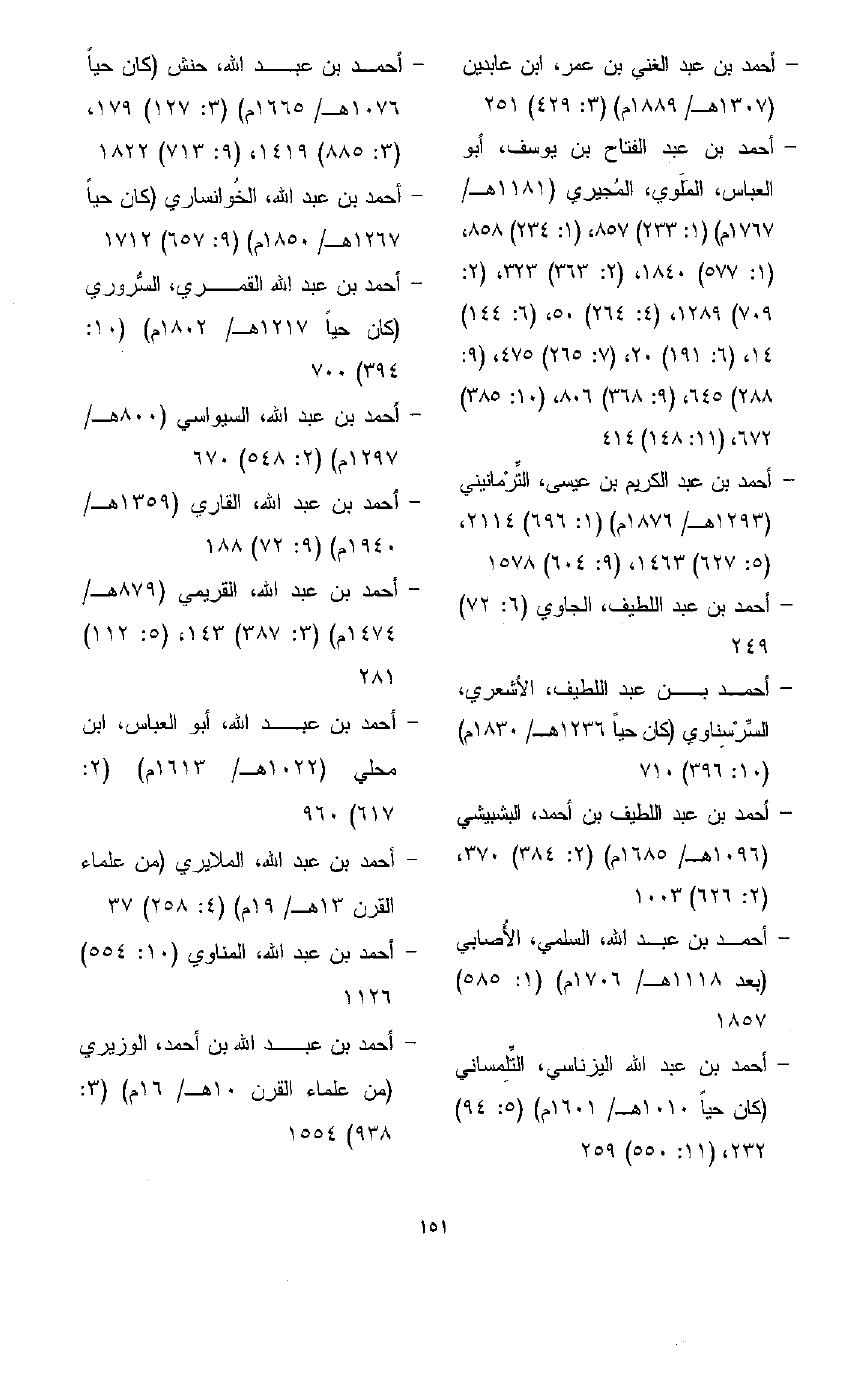 - أحمد بن عبد الغني بن عمر، ابن عابدين
(١٣٠٧هـ/ ١٨٨٩م) (٣: ٤٢٩) ٢٥١
- أحمد بن عبد الفتاح بن يوسف، أبو
العباس، الملَّوي، المُجيري (١١٨١هـ/
١٧٦٧م) (١: ٢٣٣) ٨٥٧، (١: ٢٣٤) ٨٥٨،
(١: ٥٧٧) ١٨٤٠، (٢: ٣٦٣) ٣٢٣، (٢:
٧٠٩) ١٢٨٩، (٤: ٢٦٤) ٥٠، (٦: ١٤٤)
١٤، (٦: ١٩١) ٢٠، (٧: ٢٦٥) ٤٧٥، (٩:
٢٨٨) ٦٤٥، (٩: ٣٦٨) ٨٠٦، (١٠: ٣٨٥)
٦٧٢، (١١: ١٤٨) ٤١٤
- أحمد بن عبد الكريم بن عيسى، التِّرْمانيني
(١٢٩٣هـ/ ١٨٧٦م) (١: ٦٩٦) ٢١١٤،
(٥: ٦٢٧) ١٤٦٣، (٩: ٦٠٤) ١٥٧٨
- أحمد بن عبد اللطيف، الجاوي (٦: ٧٢)
٢٤٩
- أحمد بن عبد اللطيف، الأشعري،
السِّرْسِناوي (كان حياً ١٢٣٦هـ/ ١٨٣٠م)
(١٠: ٣٩٦) ٧١٠
- أحمد بن عبد اللطيف بن أحمد، البشبيشي
(١٠٩٦هـ/ ١٦٨٥م) (٢: ٣٨٤) ٣٧٠،
(٢: ٦٢٦) ١٠٠٣
- أحمد بن عبد الله، السلمي، الأُصابي
(بعد ١١١٨هـ/ ١٧٠٦م) (١: ٥٨٥)
١٨٥٧
- أحمد بن عبد الله اليزناسي، التِّلِمساني
(كان حياً ١٠١٠هـ/ ١٦٠١م) (٥: ٩٤)
٢٣٢، (١١: ٥٥٠) ٢٥٩
- أحمد بن عبد الله، حنش (كان حياً
١٠٧٦هـ/ ١٦٦٥م) (٣: ١٢٧) ١٧٩،
(٣: ٨٨٥) ١٤١٩، (٩: ٧١٣) ١٨٢٢
- أحمد بن عبد الله، الخُوانساري (كان حياً
١٢٦٧هـ/ ١٨٥٠م) (٩: ٦٥٧) ١٧١٢
- أحمد بن عبد الله القمري، السُّروري
(كان حياً ١٢١٧هـ/ ١٨٠٢م) (١٠:
٣٩٤) ٧٠٠
- أحمد بن عبد الله، السيواسي (٨٠٠هـ/
١٢٩٧م) (٢: ٥٤٨) ٦٧٠
- أحمد بن عبد الله، القاري (١٣٥٩هـ/
١٩٤٠م) (٩: ٧٢) ١٨٨
- أحمد بن عبد الله، القريمي (٨٧٩هـ/
١٤٧٤م) (٣: ٣٨٧) ١٤٣، (٥: ١١٢)
٢٨١
- أحمد بن عبد الله، أبو العباس، ابن
محلي (١٠٢٢هـ/ ١٦١٣م) (٢:
٦١٧) ٩٦٠
- أحمد بن عبد الله، الملايري (من علماء
القرن ١٣هـ/ ١٩م) (٤: ٢٥٨) ٣٧
- أحمد بن عبد الله، المناوي (١٠: ٥٥٤)
١١٢٦
- أحمد بن عبد الله بن أحمد، الوزيري
(من علماء القرن ١٠هـ/ ١٦م) (٣:
٩٣٨) ١٥٥٤
١٥١